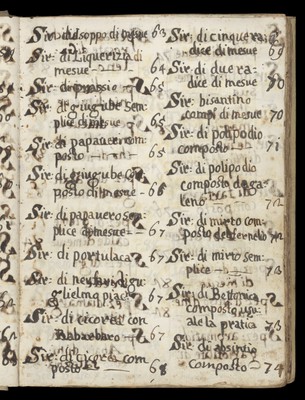 Sir: di Isoppo di mesue 63
Sir: di Liquerizia di
mesue 64
Sir: di prassio 65
Sir: di giugiube Sem
plice di mesue 65
Sir: di papauero com
posto 65
Sir: di giugiube Co
posto di mesue 66
Sir: di papauero sem
plice di mesue 67
Sir: di portulaca 67
Sir: di
glielmo piac 67
Sir: di cicorea con
Reobarbaro 67
Sir: di cicorea com
posto 68
Sir: di cinque ra
dice di mesue 69
Sir: di due ra
dice di mesue 70
Sir: bisantino
comp: di mesue 70
Sir: di polipodio
composto 71
Sir: di polipodio
composto de ga
leno 72
Sir: di mirto com
posto 72
Sir: di mirto sem
plice 73
Sir: di Bettonica
composto
ale la pratica 73
Sir: di absintio
composto 74